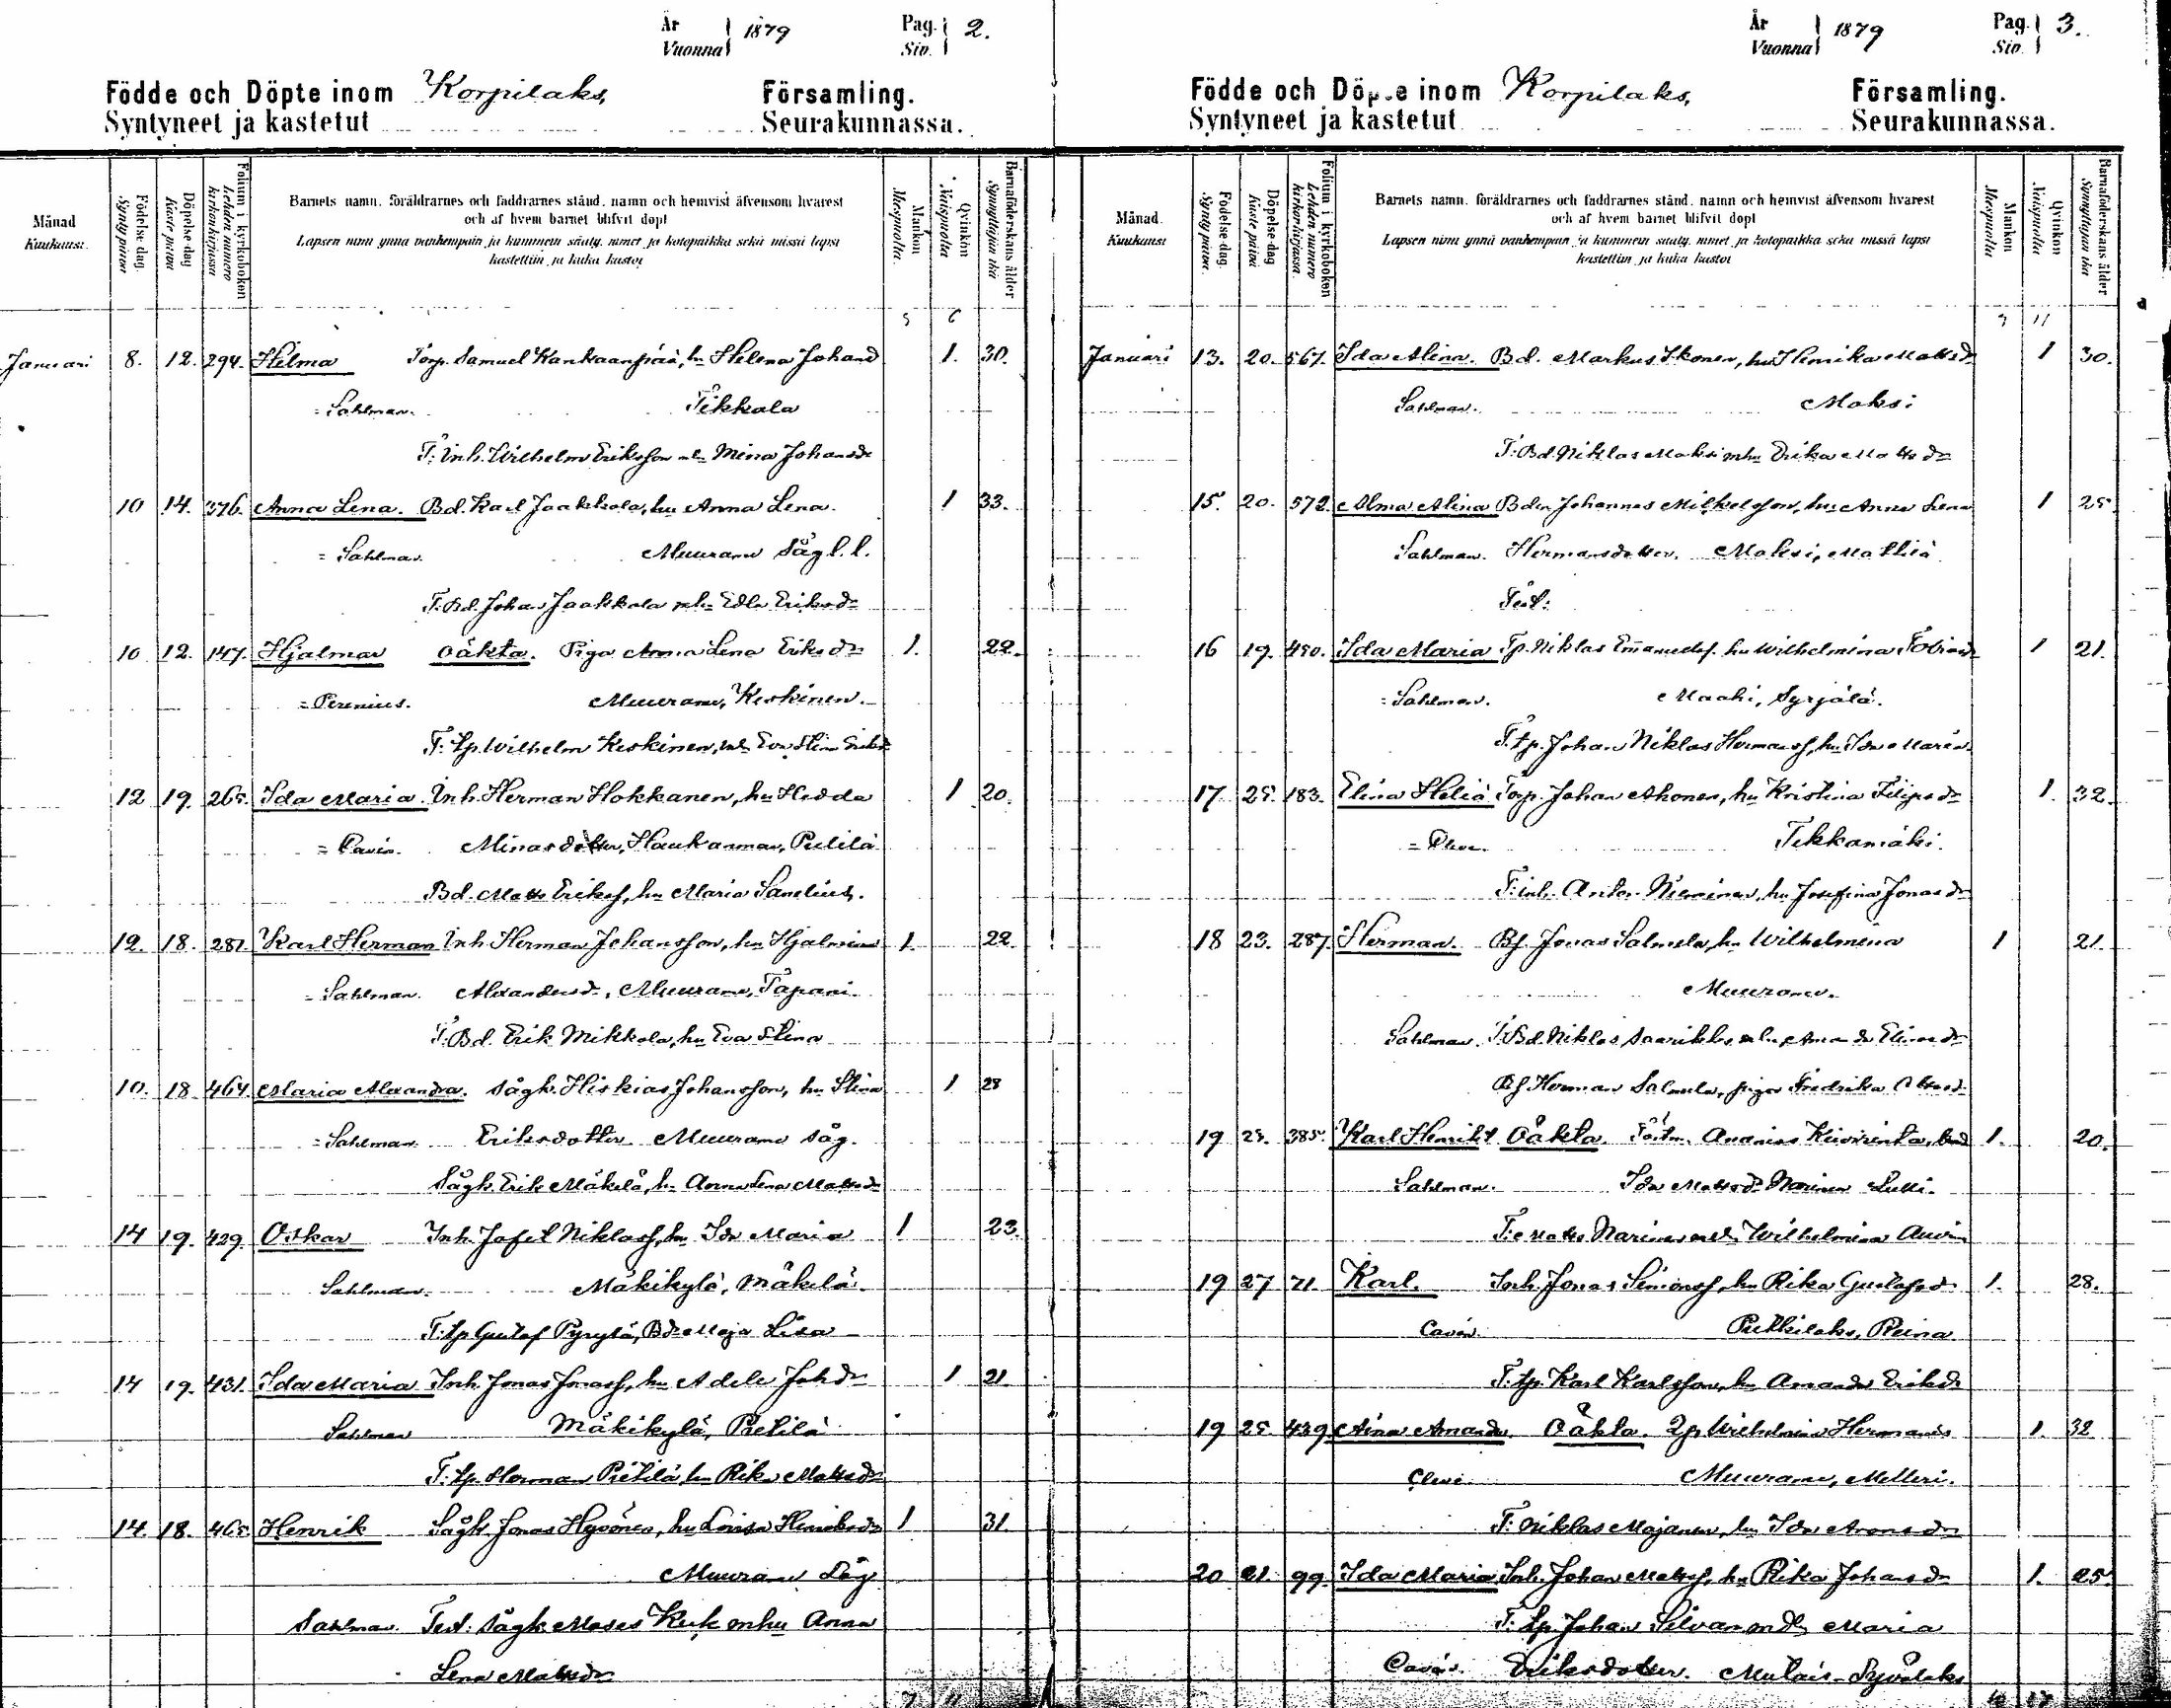 År 1879 Pag. 2.
Vuonna Siv.
Födde och Döpte inom Korpilaks, Församling.
Syntyneet ja kastetut Seurakunnassa.
Månad
Kuukausi.
Födelse-dag.
Synty päivä
Döpelse-dag
Kaste päivä
Folium i kyrkoboken
Lehden numero kirkonkirjassa
Barnets namn, föräldrarnes och faddrarnes stånd, namn och hemvist äfvensom hvarest
och af hvem barnet blifvit döpt
Lapsen nimi ynnä vanhempain ja kummein sääty, nimet ja kotopaikka sekä missä lapsi
kastettiin ja kuka kastoi
Mankön
Miespuolia.
Qvinkön
Naispuolia
Barnaföderskans ålder
Synnyttäjän ikä
Januari 8. 12. 294. Hilma Torp. Samuel Kankaanpää, hu Helena Johand 1. 30.
= Sahlman. Tikkala
F: Inh. Wilhelm Eriksson Mina Johansdr
10 14. 376. Anna Lena. Bd. Karl Jaakkola, hu Anna Lena. 1 33.
= Sahlman. Muurame Såg l. l.
F: Bd. Johan Jaakkola mhu Edla Eriksdr
10 12. 147. Hjalmar oäkta. Piga Anna Lena Eriksdr 1. 22.
= Perenius. Muurame, Keskinen.
F: Lp. Wilhelm Keskinen, Eva Stina
12 19. 265. Ida Maria. Inh. Herman Hokkanen, hu Hedda 1 20.
= Cavén. Minasdotter, Haukanmaa,
Bd. Matts Eriks, hu Maria
12. 18. 281. Karl Herman Inh. Herman Johansson, hu 1. 22.
= Sahlman. Muurame, Tapani.
F: Bd. Erik Mikkola, hu Eva Stina
10. 18 464. Maria Alexandra. Sågk. Hiskias Johansson, hu Stina 1 28
= Sahlman. Eriksdotter Muurame såg.
Sågk. Erik Mäkelä, hu Anna Lena Mattsdr
14 19. 429. Oskar Inh. Jafet Niklass, hu Ida Maria 1 23.
Sahlman. Mäkikylä, Mäkelä.
F: Lp Gustaf Pyrylä, Maja Lisa
14 19. 431. Ida Maria Inh. Jonas Jonass, hu Adele Johdr 1 21
Sahlman Mäkikylä, Pietilä
F: Lp. Herman Pietilä hu Rika Mattsdr
14. 18. 465. Henrik Sågk. Jonas Hyvönen, hu Lovisa Henriksdr 1 31
Muurame Såg
Sahlman. Test: Sågk. Moses Kuk mhu Anna
Lena Mattsdr
År 1879 Pag. 3.
Vuonna Siv.
Födde och Döpte inom Korpilaks, Församling.
Syntyneet ja kastetut Seurakunnassa.
Månad.
Kuukausi
Födelse-dag.
Synty päivä.
Döpelse-dag
Kaste päivä
Folium i kyrkoboken
Lehden numero kirkonkirjassa.
Barnets namn, föräldrarnes och faddrarnes stånd, namn och hemvist äfvensom hvarest
och af hvem barnet blifvit döpt
Lapsen nimi ynnä vanhempain ja kummein sääty, nimet ja kotopaikka sekä missä lapsi
kastettiin ja kuka kastoi
Mankön
Miespuolia
Qvinkön
Naispuolia
Barnaföderskans ålder
Synnyttäjän ikä
Januari 13. 20. 567. Ida Alina. Bd. Markus Ikonen, hu Henrika Mattsdr 1 30.
Sahlman. Moksi
F: Bd. Niklas Moksi mhu Erika Mattsdr
15. 20. 572. Alma Alina Bdn Johannes Mikkelsson, hu Anna Lena 1 25
Sahlman. Hermansdotter. Moksi, Mattila
Test:
16 19. 450. Ida Maria Lp. Niklas Emanuels. hu Wilhelmina 1 21.
= Sahlman. Maahi, Syrjälä.
F. Lp. Johan Niklas Hermans, hu Ida Maria
17 25. 183. Elina Torp. Johan Ahonen, hu Kristina Filipsdr 1. 32.
Tikkamäki.
F: inh. Anton Nieminen, hu Josefina Jonasdr
18 23. 287. Herman. Bs. Jonas Salmela, hu Wilhelmina 1 21.
Muurame.
Sahlman. F: Bd. Niklas Amanda
Bs. Herman Salmela, piga Fredrika
19 25. 385. Karl Henrik Oäkta. Ananias 1. 20.
Sahlman. Ida Mattsdr Narinen
F: Matts Narinen Wilhelmina
19 27 71. Karl. Inh. Jonas Simons, hu Rika Gustafsdr 1. 28.
Cavén. Putkilaks,
F: Lp. Karl Karlsson, hu Amanda Eriksdr
19 25. 439 Aina Amanda. Oäkta. Wilhelmina Hermans 1. 32
Muurame, Melleri.
F: Niklas Majanen, hu Ida Aronsdr
20 21. 99. Ida Maria Inh. Johan Matss, hu Rika Johansdr 1. 25.
F: Lp. Johan Silvan Maria
Cavén. Eriksdotter.